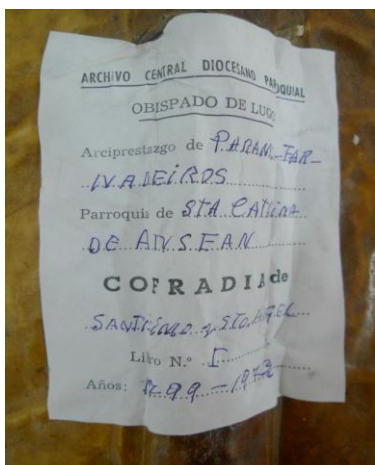 ARCHIVO CENTRAL DIOCESANO PARROQUIAL
OBISPADO DE LUGO
Arciprestazgo de PARAM-FAR-
IVADEIROS
Parroquia de STA CATLINA
DE ANSEAN
COFRADIA de
SANTISIMO y STO. ANGEL
Libro N.º I
Años: 1973